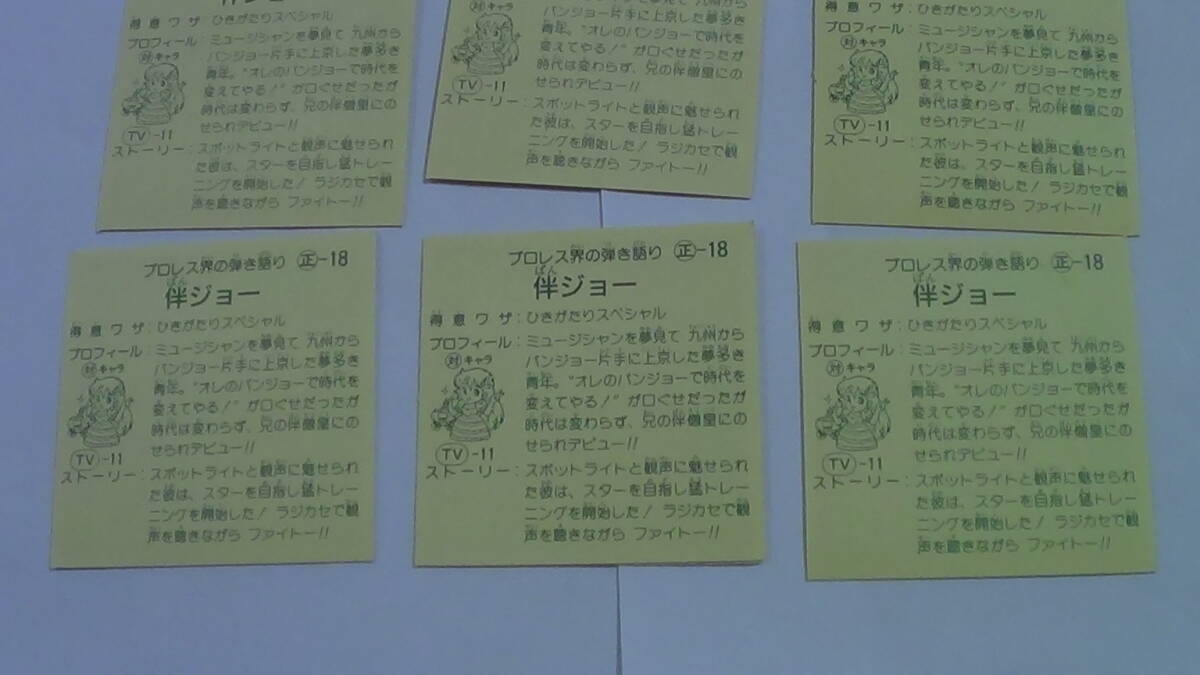 伴ジョー
得意ワザ：ひきがたりスペシャル
プロフィール：ミュージシャンを夢見て 九州から
対キャラ バンジョー片手に上京した夢多き
青年。"オレのバンジョーで時代を
変えてやる！"が口ぐせだったが
時代は変わらず、兄の伴僧皇にの
TV-11 せられデビュー!!
ストーリー：スポットライトと観声に魅せられ
た彼は、スターを目指し猛トレー
ニングを開始した！ラジカセで観
声を聴きながら ファイトー!!
対キャラ バンジョー片手に上京した夢多き
青年。"オレのバンジョーで時代を
変えてやる！"が口ぐせだったが
時代は変わらず、兄の伴僧皇にの
TV-11 せられデビュー!!
ストーリー：スポットライトと観声に魅せられ
た彼は、スターを目指し猛トレー
ニングを開始した！ラジカセで観
声を聴きながら ファイトー!!
得意ワザ：ひきがたりスペシャル
プロフィール：ミュージシャンを夢見て 九州から
対キャラ バンジョー片手に上京した夢多き
青年。"オレのバンジョーで時代を
変えてやる！"が口ぐせだったが
時代は変わらず、兄の伴僧皇にの
TV-11 せられデビュー!!
ストーリー：スポットライトと観声に魅せられ
た彼は、スターを目指し猛トレー
ニングを開始した！ラジカセで観
声を聴きながら ファイトー!!
プロレス界の弾き語り 正-18
伴ジョー
得意ワザ：ひきがたりスペシャル
プロフィール：ミュージシャンを夢見て 九州から
対キャラ バンジョー片手に上京した夢多き
青年。"オレのバンジョーで時代を
変えてやる！"が口ぐせだったが
時代は変わらず、兄の伴僧皇にの
TV-11 せられデビュー!!
ストーリー：スポットライトと観声に魅せられ
た彼は、スターを目指し猛トレー
ニングを開始した！ラジカセで観
声を聴きながら ファイトー!!
プロレス界の弾き語り 正-18
伴ジョー
得意ワザ：ひきがたりスペシャル
プロフィール：ミュージシャンを夢見て 九州から
対キャラ バンジョー片手に上京した夢多き
青年。"オレのバンジョーで時代を
変えてやる！"が口ぐせだったが
時代は変わらず、兄の伴僧皇にの
TV-11 せられデビュー!!
ストーリー：スポットライトと観声に魅せられ
た彼は、スターを目指し猛トレー
ニングを開始した！ラジカセで観
声を聴きながら ファイトー!!
プロレス界の弾き語り 正-18
伴ジョー
得意ワザ：ひきがたりスペシャル
プロフィール：ミュージシャンを夢見て 九州から
対キャラ バンジョー片手に上京した夢多き
青年。"オレのバンジョーで時代を
変えてやる！"が口ぐせだったが
時代は変わらず、兄の伴僧皇にの
TV-11 せられデビュー!!
ストーリー：スポットライトと観声に魅せられ
た彼は、スターを目指し猛トレー
ニングを開始した！ラジカセで観
声を聴きながら ファイトー!!